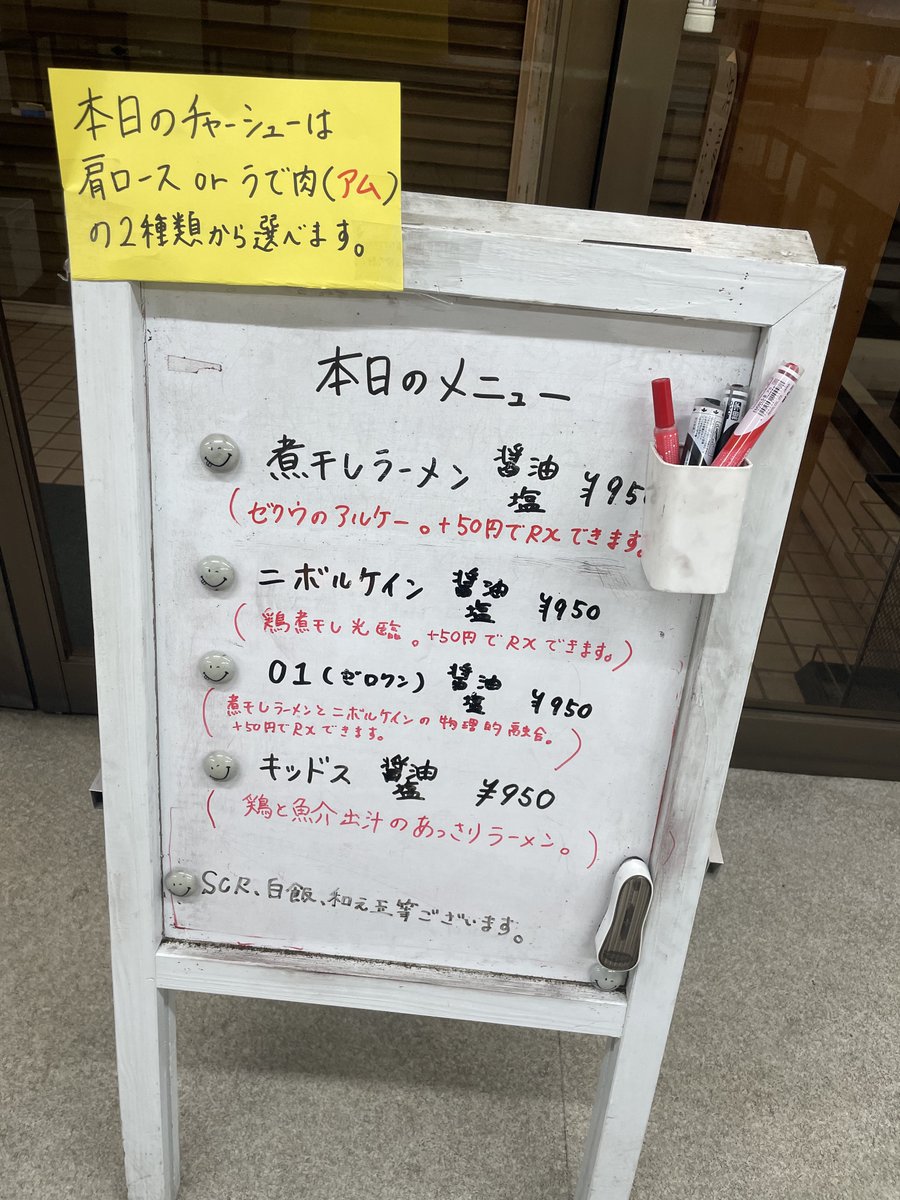 本日のチャーシューは
肩ロース or うで肉(アム)
の2種類から選べます。
本日のメニュー
煮干しラーメン 醤油 塩 ¥95
(ゼクウのアルケー。+50円でRXできます。
ニボルケイン 醤油 塩 ¥950
(鶏煮干し光臨。+50円でRXできます。)
01(ゼロワン) 醤油 塩 ¥950
(煮干しラーメンとニボルケインの物理的融合。
+50円でRXできます。)
キッドス 醤油 塩 ¥950
(鶏と魚介出汁のあっさりラーメン。)
SCR、白飯、和え玉等ございます。